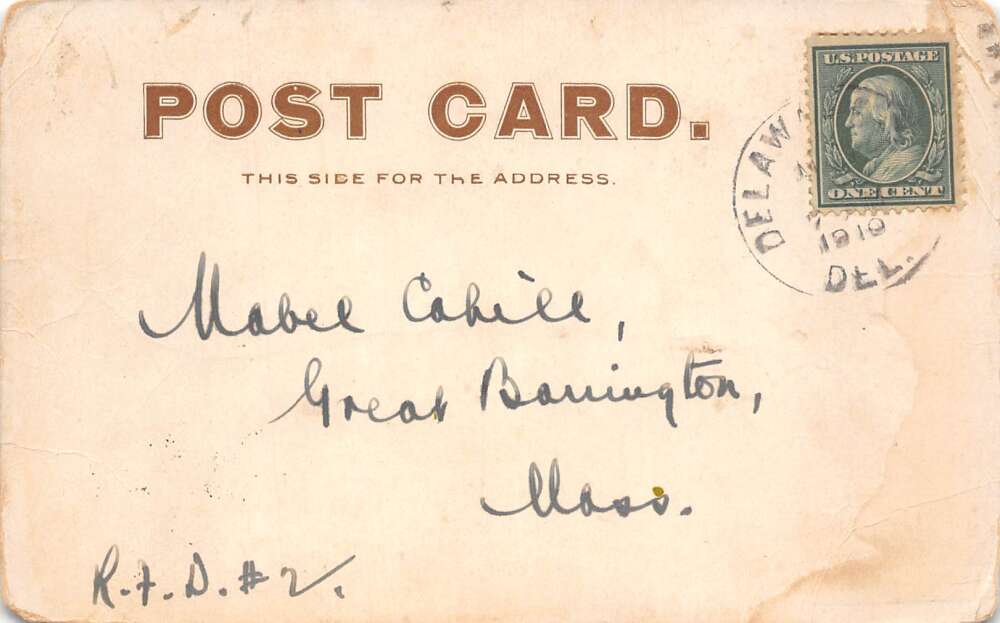 POST CARD.
THIS SIDE FOR THE ADDRESS.
U.S. POSTAGE
ONE CENT
DELAWA
1910
DEL.
Mabel Cahill,
Great Barrington,
Mass.
R.F.D. #2.